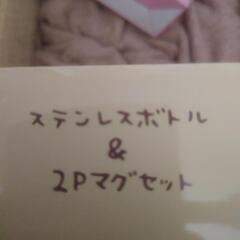 ステンレスボトル
&
2Pマグセット